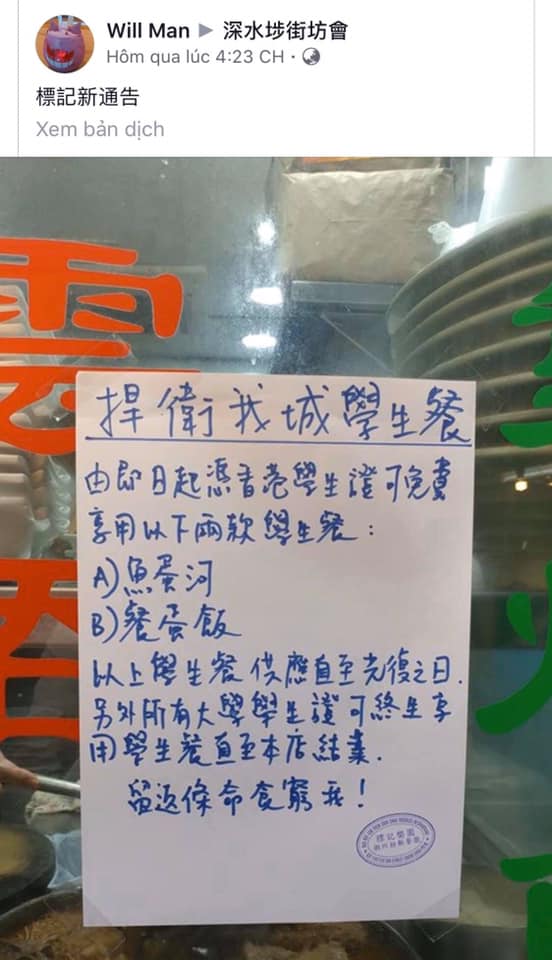 Will Man ▶ 深水埗街坊會
Hôm qua lúc 4:23 CH
標記新通告
Xem bản dịch
雲
捍衛我城學生餐
由即日起憑香港學生證可免費
享用以下兩款學生餐:
A)魚蛋河
B)餐蛋飯
以上學生餐供應直至光復之日.
另外所有大學學生證可終生享
用學生餐直至本店結業.
留返條命食窮我!